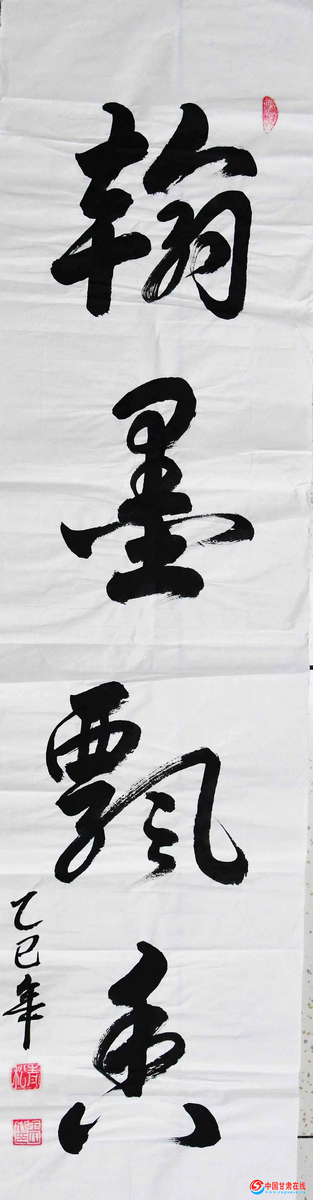 翰墨飘香
乙巳年
中国甘肃在线